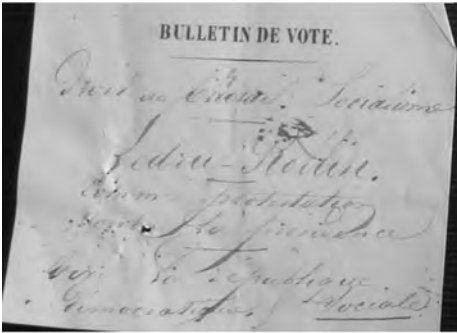 BULLETIN DE VOTE.
Droit au travail. Socialisme
Ledru-Rollin.
Comme protestation
contre la présidence
Vive la République
Démocratique Sociale